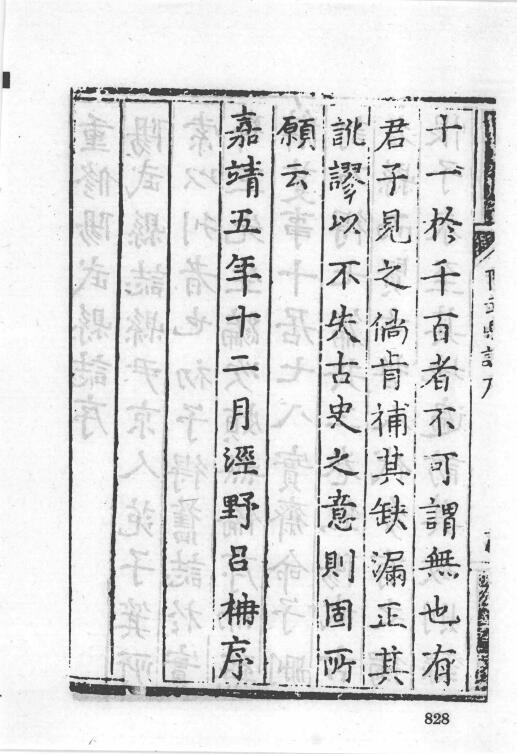 十一於千百者不可謂無也有
君子見之倘肯補其缺漏正其
訛謬以不失古史之意則固所
願云
嘉靖五年十二月涇野呂柟序
828